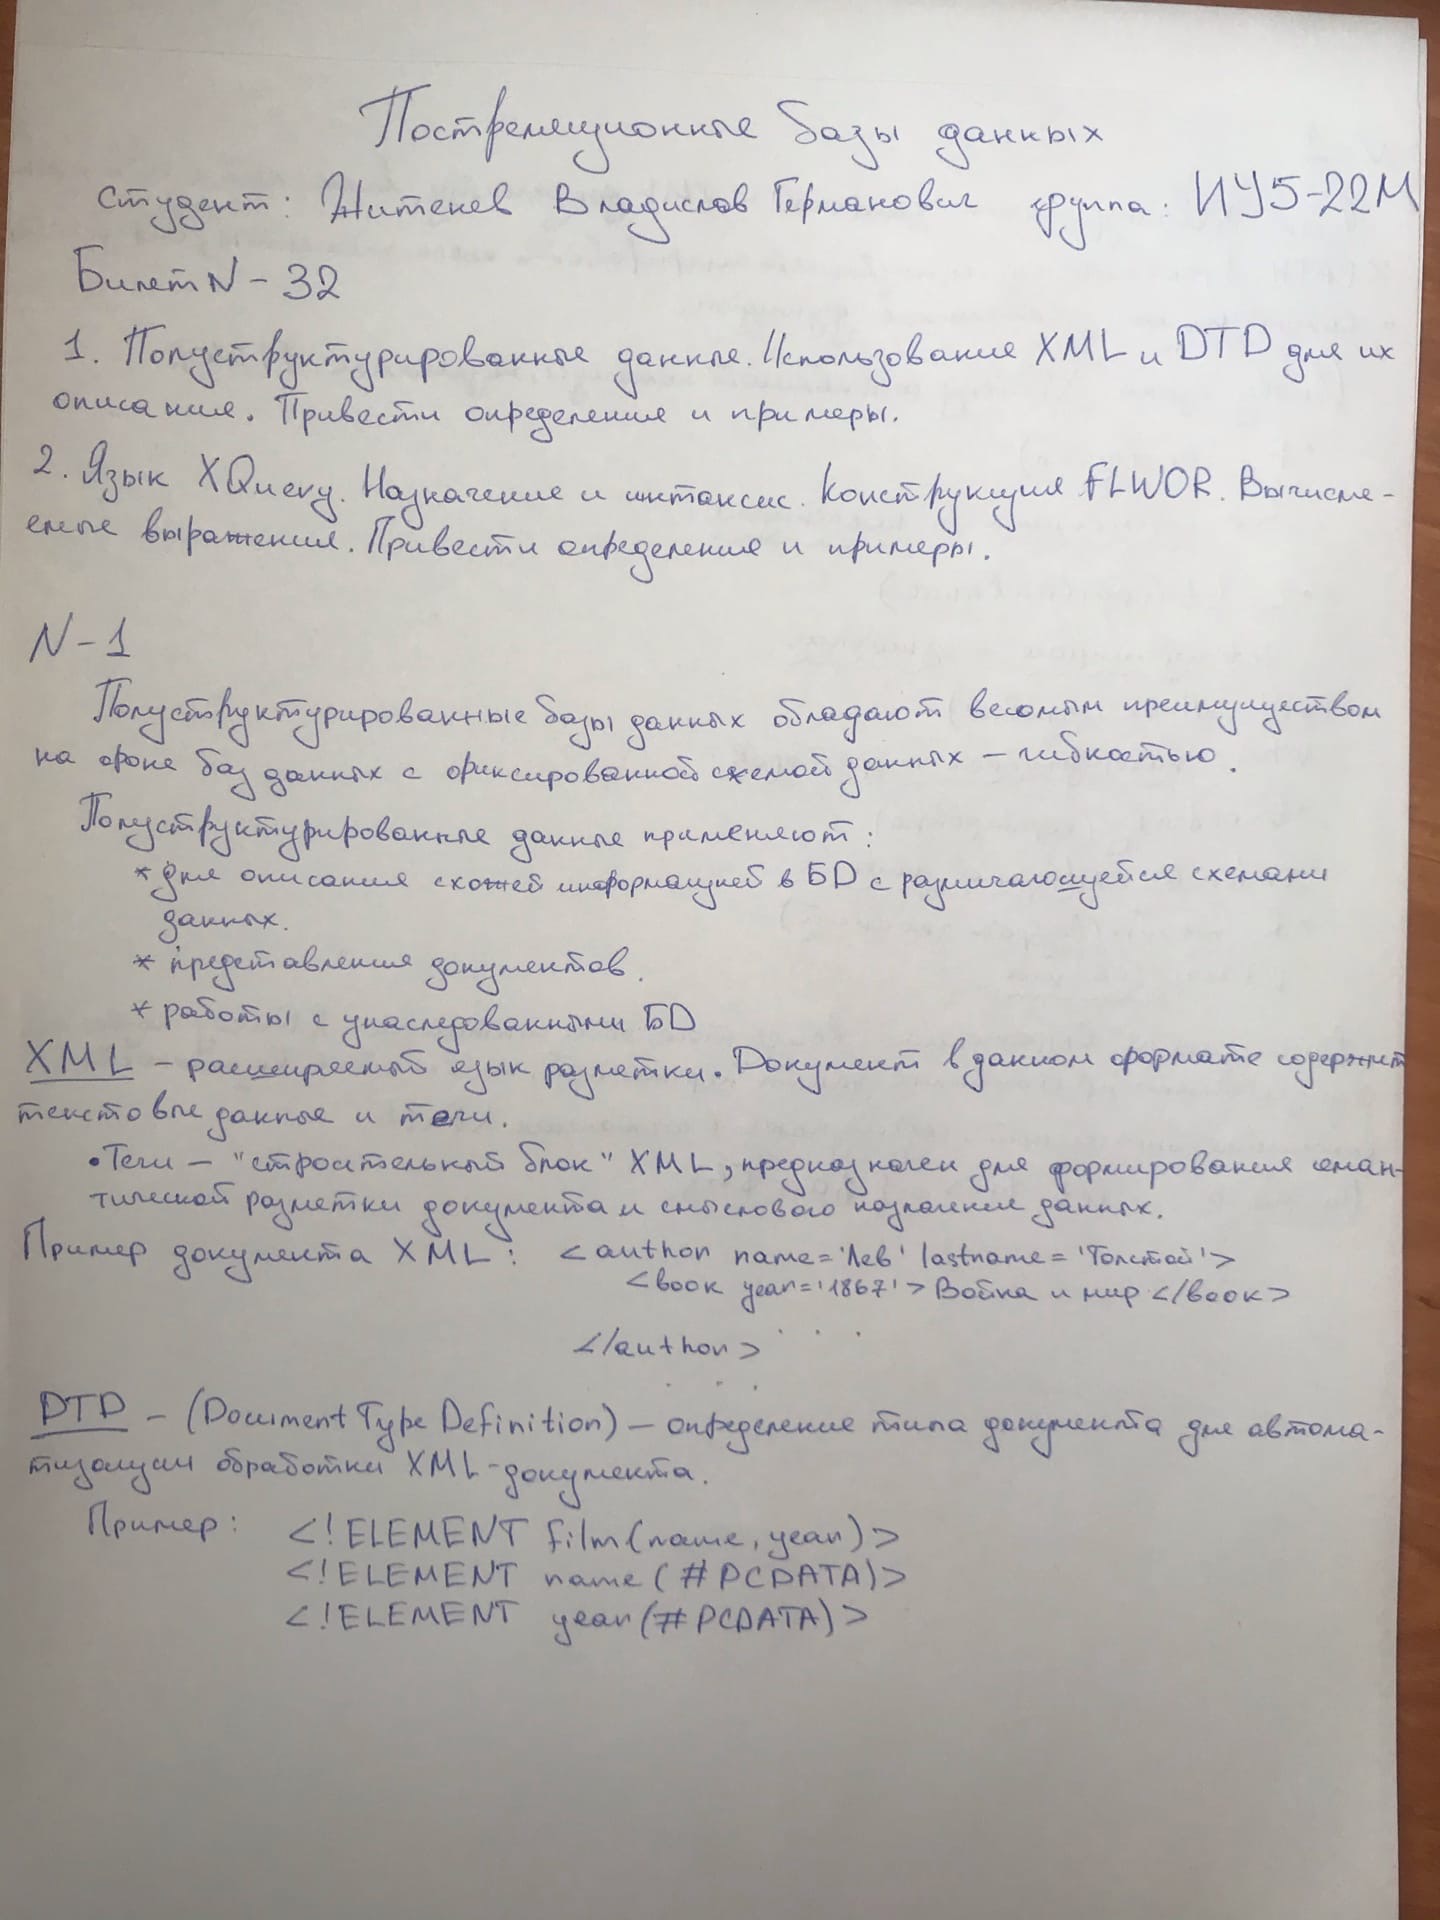 Постреляционные базы данных
студент: Житенев Владислав Германович группа: ИУ5-22М
Билет N-32
1. Полуструктурированные данные. Использование XML и DTD для их
описания. Привести определения и примеры.
2. Язык XQuery. Назначение и синтаксис. Конструкция FLWOR. Вычисля-
емые выражения. Привести определения и примеры.
N-1
Полуструктурированные базы данных обладают весомым преимуществом
на фоне баз данных с фиксированной схемой данных – гибкостью.
Полуструктурированные данные применяют:
* для описания схожей информацией в БД с различающуейся схемами
данных.
* представления документов.
* работы с унаследованными БД
XML – расширяемый язык разметки. Документ в данном формате содержит
текстовые данные и теги.
• Теги – "строительный блок" XML, предназначен для формирования семан-
тической разметки документа и смыслового назначение данных.
Пример документа XML: <author name='Лев' lastname='Толстой'>
<book year='1867'> Война и мир </book>
. . .
</author>
. . .
DTD – (Document Type Definition) – определение типа документа для автома-
тизации обработки XML-документа.
Пример: <!ELEMENT film(name, year)>
<!ELEMENT name (#PCDATA)>
<!ELEMENT year(#PCDATA)>